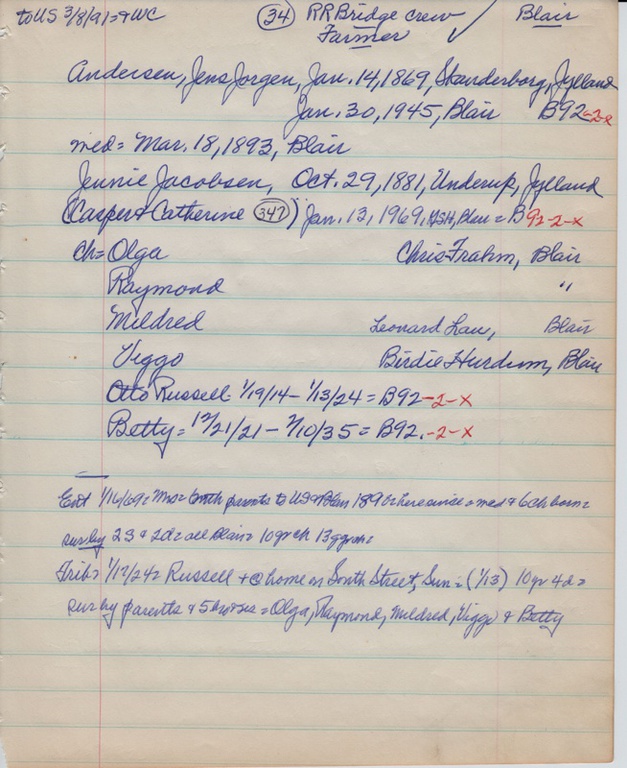 to US 3/8/91=9 WC (34) RR Bridge crew Blair
Farmer ✓
Andersen, Jens Jorgen, Jan. 14, 1869, Skanderborg, Jylland
Jan. 30, 1945, Blair B92-2-x
med= Mar. 18, 1893, Blair
Jennie Jacobsen, Oct. 29, 1881, Underup, Jylland
(Casper & Catherine (347)) Jan. 13, 1969, Blair = B92-2-x
ch= Olga Chris Frahm, Blair
Raymond "
Mildred Leonard Blair
Viggo Birdie Blair
Otto Russell - 1/19/14 - 1/13/24 = B92-2-x
Betty = 12/21/21 - 7/10/35 = B92.-2-x
Ent 1/16/69= parents to US & Blair = med & 6 ch born=
sur by 2S & 2d= all Blair= 10 gr ch 13 ggrch=
Trib= 1/17/24= Russell + @ home on South Street, Sun= (1/13) 10 yr 4d=
sur by parents & 5 bro & sis= Olga, Raymond, Mildred, Viggo & Betty